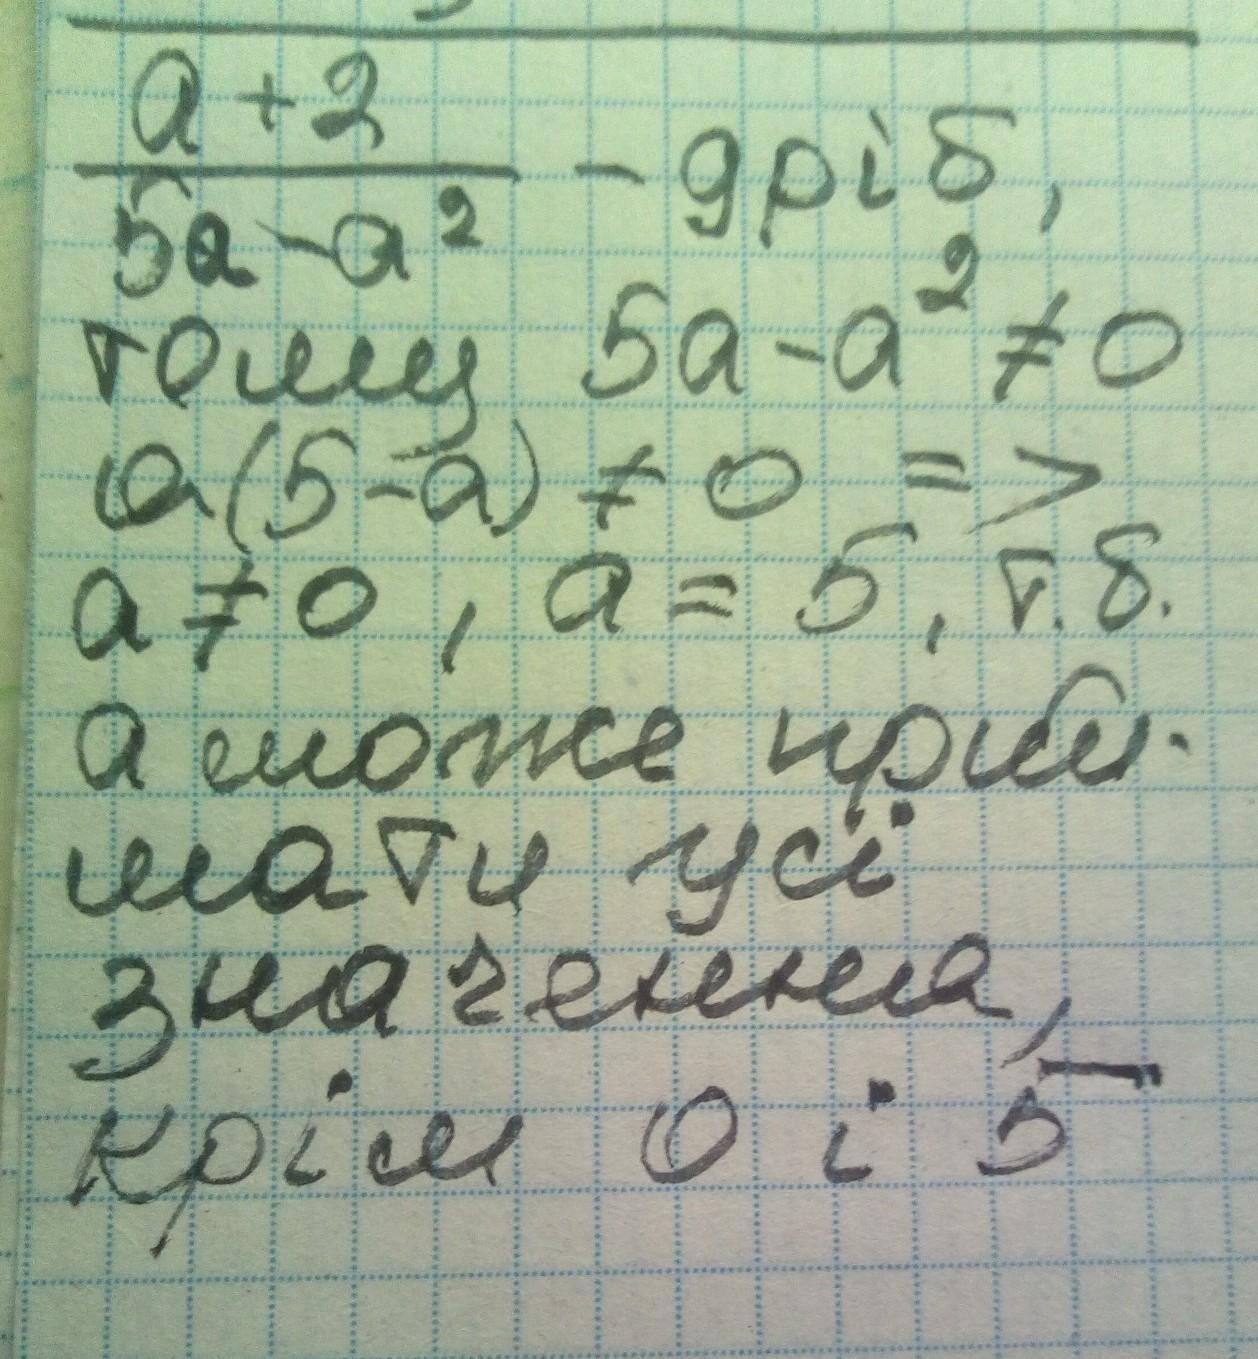 a + 2
5a - a² - дріб,
тому 5a - a² ≠ 0
a(5-a) ≠ 0 =>
a ≠ 0, a = 5, т.б.
a може прий-
мати усі
значення,
крім 0 і 5